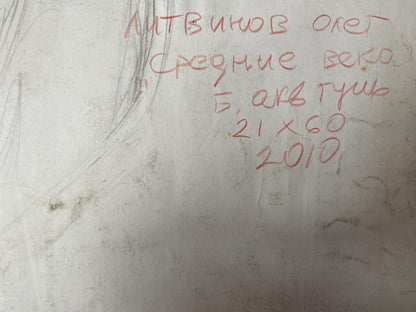 Литвинов Олег
"Средние века
Б, акв тушь
21 х 60
2010